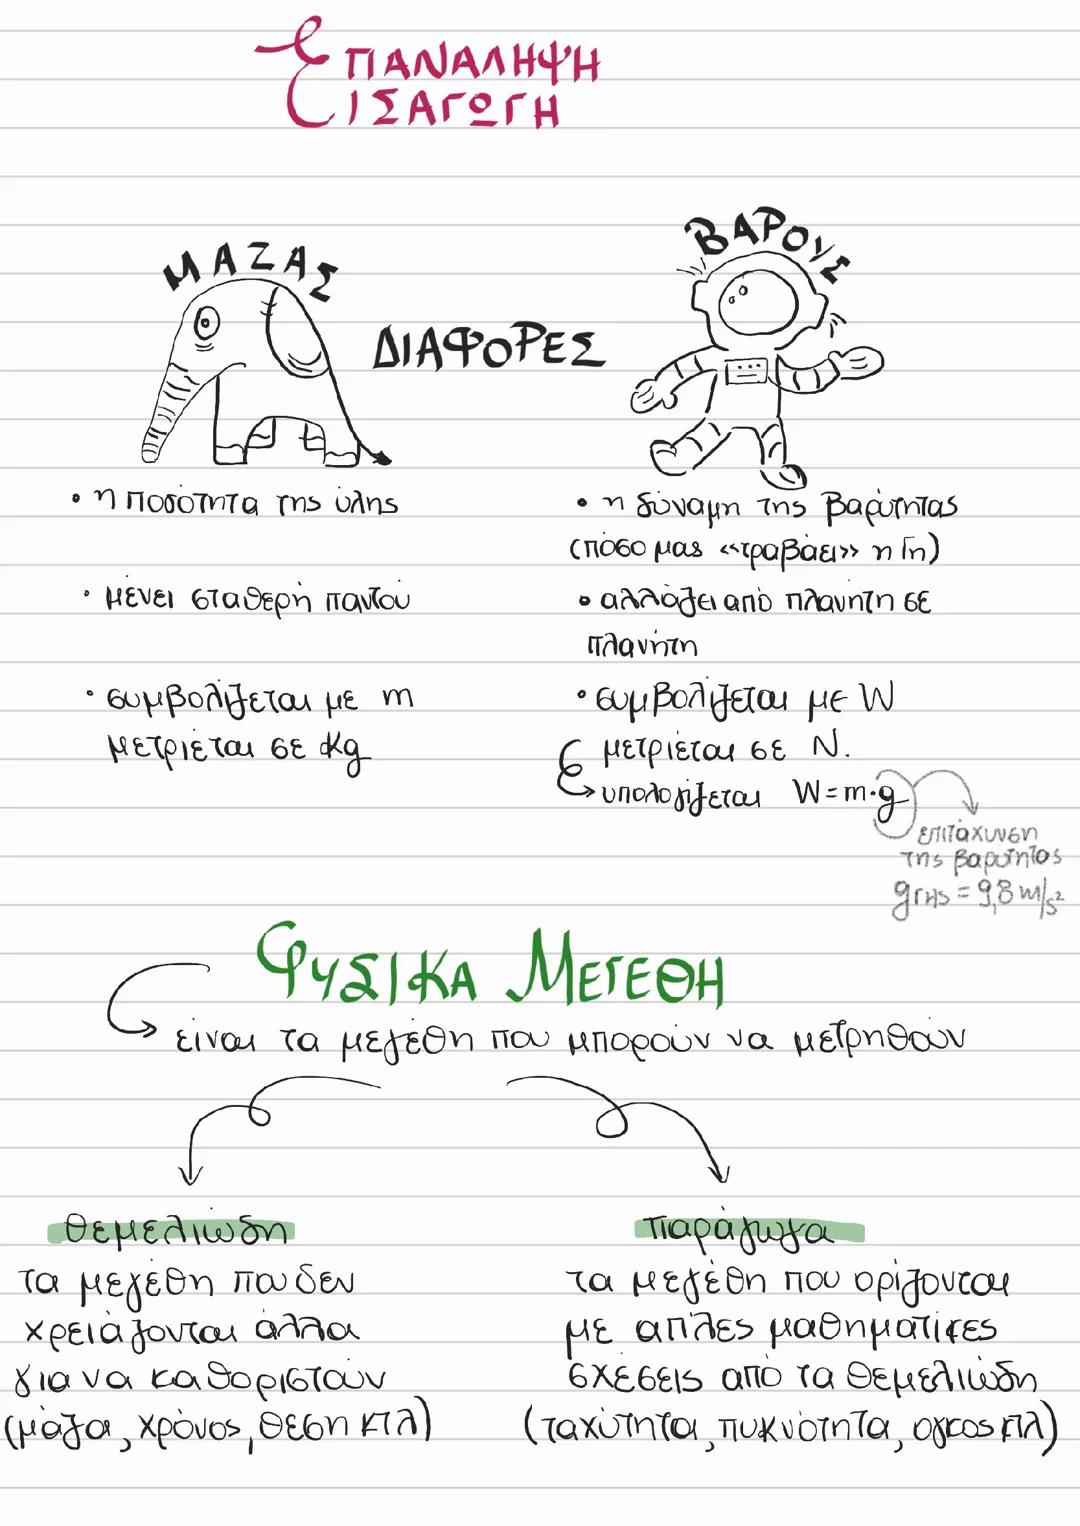 ΕΠΑΝΑΛΗΨΗ
ΕΙΣΑΓΩΓΗ
ΜΑΖΑΣ
ΒΑΡΟΥΣ
ΔΙΑΦΟΡΕΣ
• η ποσότητα της ύλης
• μένει σταθερή παντού
• συμβολίζεται με m
μετριέται σε kg
• η δύναμη της βαρύτητας
(πόσο μας «τραβάει» η Γη)
• αλλάζει από πλανήτη σε
πλανήτη
• συμβολίζεται με W
μετριέται σε N.
υπολογίζεται W=m·g
επιτάχυνση
της βαρύτητας
gΓΗΣ = 9,8 m/s²
ΦΥΣΙΚΑ ΜΕΓΕΘΗ
είναι τα μεγέθη που μπορούν να μετρηθούν
θεμελιώδη
τα μεγέθη που δεν
χρειάζονται άλλα
για να καθοριστούν
(μάζα, χρόνος, θέση κτλ)
παράγωγα
τα μεγέθη που ορίζονται
με απλές μαθηματικές
σχέσεις από τα θεμελιώδη
(ταχύτητα, πυκνότητα, ογκος κτλ)